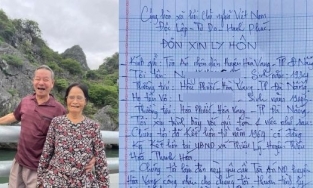 Cộng hòa xã hội chủ nghĩa Việt Nam
Độc Lập - Tự Do - Hạnh Phúc
ĐƠN XIN LY HÔN
Kính gửi: Tòa Án nhân dân Huyện Hòa Vang - TP Đà Nẵng
Tôi tên: N Sinh năm:
Thường trú: Hòa Phước, Hòa Vang, TP Đà Nẵng
Họ tên Vợ: L Sinh năm:
Thường trú: Hòa Phước, Hòa Vang, TP Đà Nẵng
Tôi xin trình bày với quý Tòa việc như sau
Chúng tôi đã kết hôn từ năm có đăng
ký kết hôn tại UBND xã Thiệu Lý, Huyện Thiệu
Hóa, Thanh Hóa.
Chúng tôi làm đơn này gửi các Tòa Án ND huyện
Hòa Vang cho chúng tôi thuận tình ly